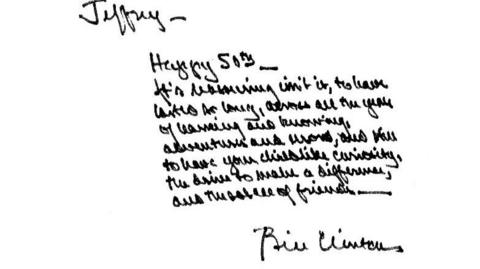 Jeffrey —
Happy 50th —
It's reassuring isn't it, to have
lasted as long, across all the years
of learning and knowing,
adventures and more, and still
to have your childlike curiosity,
the drive to make a difference,
and the solace of friends. —
Bill Clinton